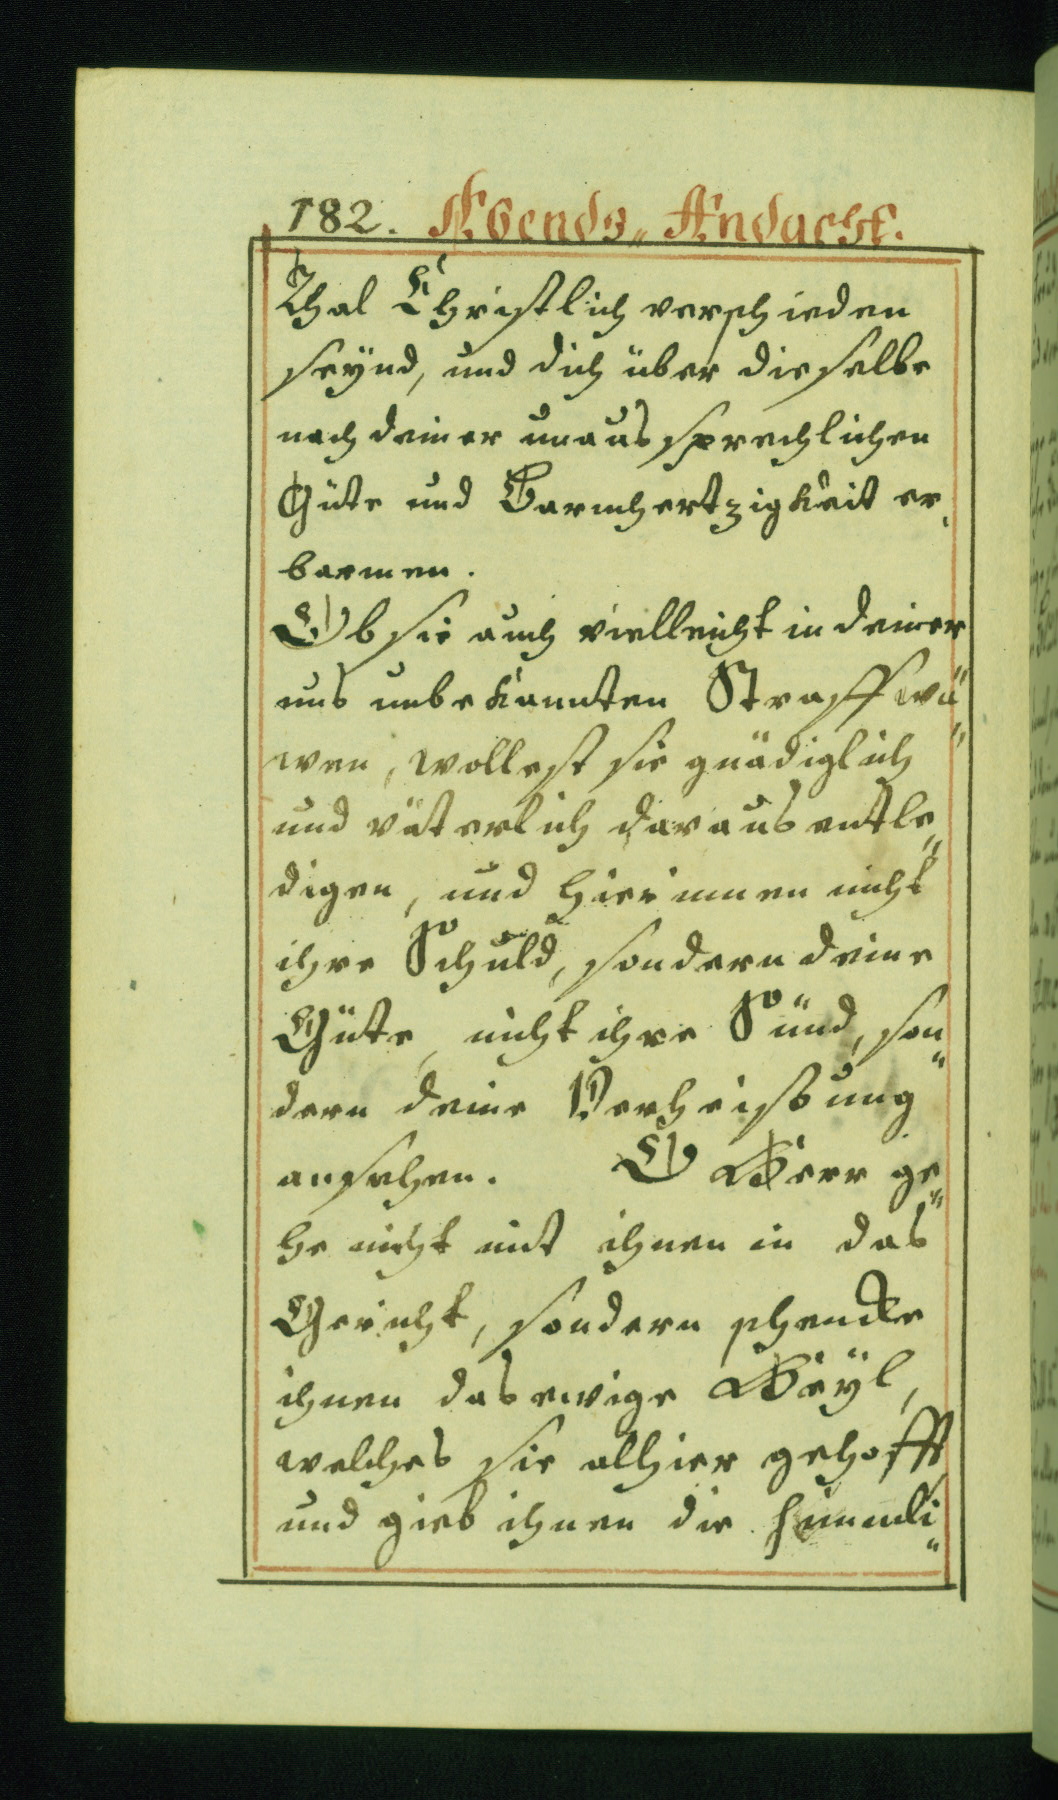 182. Abends„ Andacht.
Thal Christlich verschieden
seynd, und dich über dieselbe
nach deiner unaussprechlichen
Güte und Barmhertzigkeit er„
barmen.
Ob sie auch vielleicht in deiner
uns unbekannten Straff wä„
ren, wollest sie gnädiglich
und väterlich daraus entle„
digen, und hierinnen nicht
ihre Schuld, sondern deine
Güte, nicht ihre Sünd, son„
dern deine Verheissung
ansehen. O Herr ge„
he nicht mit ihnen in das
Gericht, sondern schencke
ihnen das ewige Heyl,
welches sie alhier gehofft
und gieb ihnen die himmli„